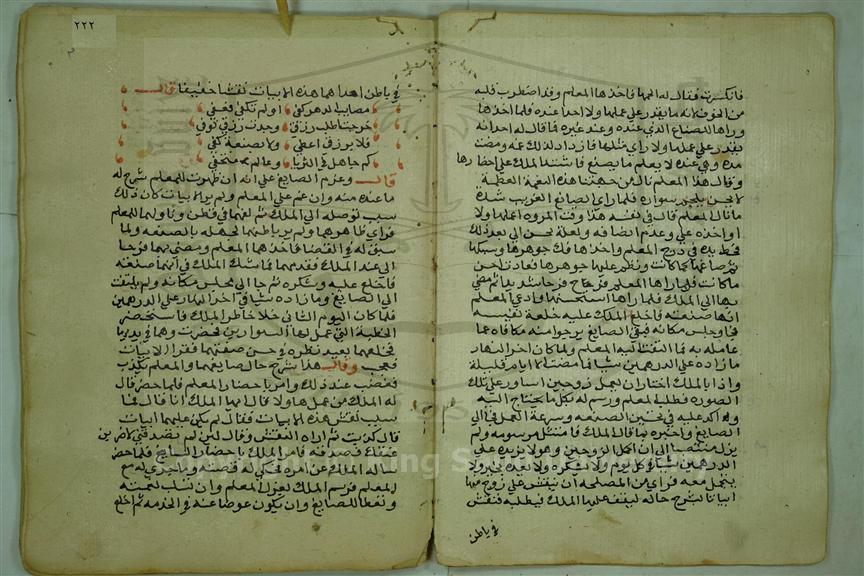 فانكسرت فقال له الحقها فاخذها المعلم وقد اضطرب قلبه
من الخوف فانه ما يقدر على عملها ولا احد عنده فلما اخذها
وراها للصناع الذي عنده وعند غيره فما قال له احد انه
يقدر على عملها ولا راي مثلها فازداد لذلك غمه ومضت
مده وهي عنده لا يعلم ما يصنع فاشتد الملك على احضارها
وقال هذا المعلم نال من جهتنا هذه النعمة العظيمة
لا يحسن يلحم سواره فلما راي الصايغ الغريب شدة
ما نال المعلم قال في نفسه هذا وقت المروه اعملها ولا
اواخذه على وعدم انصافه ولعله يحسن الي بعد ذلك
فحط يده في درج المعلم واخذها فك جوهرها وسبكها
ثم صاغها كما كانت ونظم عليها جوهرها فعادت احسن
ما كانت فلما راها المعلم فرح فرحا شديدا ثم مضى
بها الى الملك فلما راها استحسنها وادعى المعلم
انها صنعته فاخلع الملك عليه خلعة نفيسه
فجا وجلس مكانه فبقي الصايغ يرجوا منه مكافاه عما
عامله به فما التفت اليه المعلم ولما كان اخر النهار
ما زاده على الدرهمين شيا فما مضت الا ايام قليلة
واذا بالملك اختار ان يعمل زوجين اساور على تلك
الصوره فطلب المعلم ورسم له بكل ما يحتاج اليه
واكد عليه في تحسين الصنعه وسرعة العمل فجا الى
الصايغ واخبره بما قال الملك فامتثل مرسومه ولم
يزل منتصبا الى ان اكمل الزوجين وهو لا يزيده على
الدرهمين شيا في كل يوم ولا يشكره ولا يعده بخير ولا
يتجمل معه فراي من المصلحه ان ينقش على زوج منهما
ابياتا يشرح حاله ليقف عليها الملك فيطلبه فنقش
في باطن
٢٢٢
في باطن احدهما هذه الابيات نقشا خفيفا قال
مصايب الدهر كفي او لم تكفي فعفي
خرجت اطلب رزقي وجدت رزقي توفي
فلا برزقي احظى ولا بصنعة كفي
كم جاهل في الثريا وعالم متخفي
قال وعزم الصايغ على انه ان ظهرت للمعلم شرح له
ما عنده منه وان غم على المعلم ولم ير الابيات كان ذلك
سبب توصله الى الملك ثم لفهما في قطن وناولهما للمعلم
فراي ظاهرهما ولم ير باطنهما لجهله بالصنعه ولما
سبق له في القضا فاخذهما المعلم ومضى بهما فرحا
الى عند الملك فقدمهما فما شك الملك في انهما صنعته
فاخلع عليه وشكره ثم جا الى مجلس مكانه ولم يلتفت
الى الصايغ وما زاده شيا في اخر النهار على الدرهمين
فلما كان اليوم الثاني خلا خاطر الملك فاستحضر
الحظية التي عمل لها السوارين فحضرت وهما في يديها
فخلعهما ليعيد نظره في حسن صنعتهما فقرا الابيات
فتعجب وقال هذا شرح حال صايغهما والمعلم يكذب
فغضب عند ذلك وامر باحضار المعلم فلما حضر قال
له الملك من عمل هاولا قال ايها الملك انا قال فما
سبب نقش هذه الابيات فقال لم يكن عليهما ابيات
قال كذبت ثم اراه النقش وقال لين لم تصدقني لاضربن
عنقك فصدقه فامر الملك باحضار الصايغ فلما حضر
ساله الملك عن امره فحكى له قصته وما جرى له مع
المعلم فرسم الملك بعزل المعلم وان تسلب نعمته
وتعطا للصايغ وان يكون عوضا عنه في الخدمه ثم اخلع